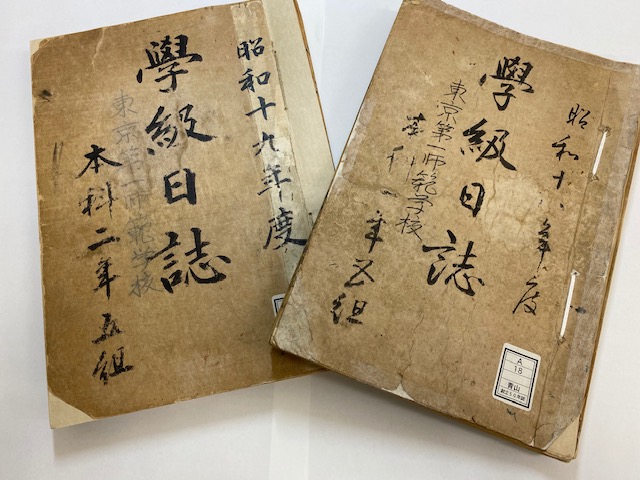 昭和十九年度
學級日誌
東京第一師範学校
本科二年五組
昭和十八年度
學級日誌
東京第一師範学校
本科一年五組
A
18
青山